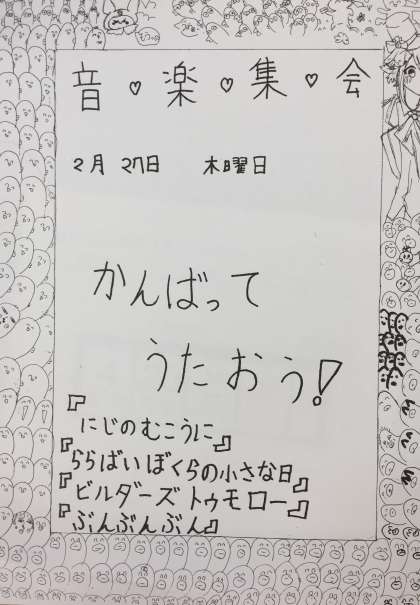 音♡楽♡集♡会
2月 27日 木曜日
かんばって
うたおう!
『にじのむこうに』
『ららばいぼくらの小さな日』
『ビルダーズトゥモロー』
『ぶんぶんぶん』